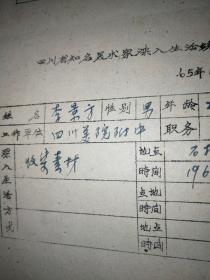 四川省知名美术家深入生活
65年
姓名 李景方 性别 男 年龄
工作单位 四川美院附中 职务
深入生活方式 收集素材 地点 石
时间 196
点地
时间
地点
时间